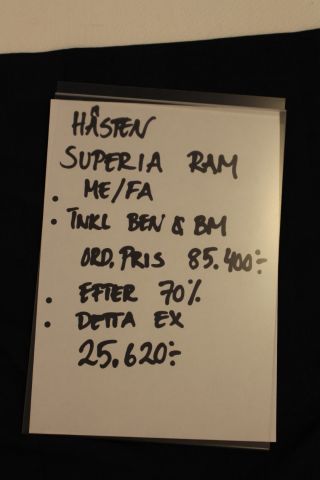 HÄSTEN
SUPERIA RAM
• ME/FA
• INKL BEN & BM
ORD. PRIS 85.400:-
• EFTER 70%
• DETTA EX
25.620:-